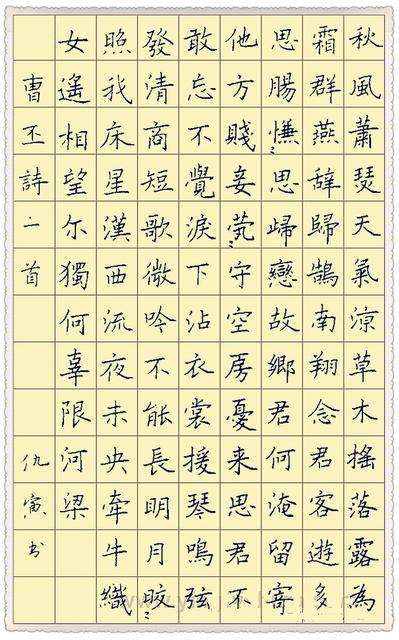 秋風蕭瑟天氣涼草木搖落露為
霜群燕辭歸鵠南翔念君客遊多
思腸慊〻思歸戀故鄉君何淹留寄
他方賤妾茕〻守空房憂来思君不
敢忘不覺淚下沾衣裳援琴鳴弦
發清商短歌微吟不能長明月皎〻
照我床星漢西流夜未央牽牛織
女遙相望尔獨何辜限河梁
曹丕詩一首 仇寅书